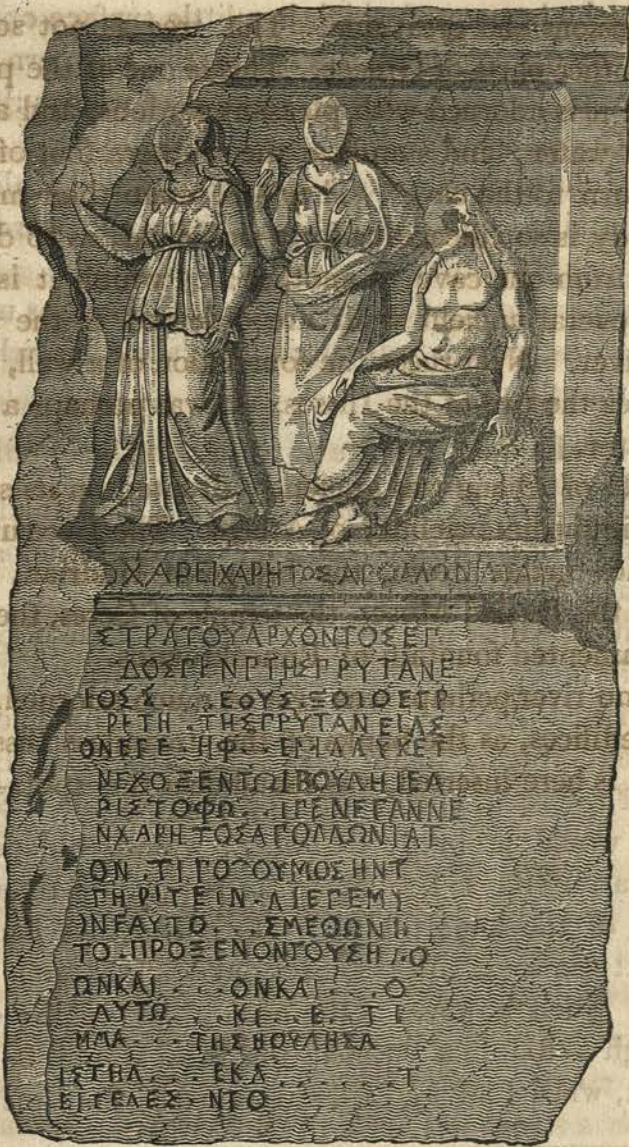 ΟΧΑΡΕΙΧΑΡΗΤΟΣΑΠΟΛΛΩΝΙΑΤΑ
ΣΤΡΑΤΟΥΑΡΧΟΝΤΟΣΕΓ
ΔΟΣΓΕΝΓΤΗΣΓΡΥΤΑΝΕ
ΙΟΣΣ...ΕΟΥΣ.ΞΟΙΟΕΓΡ
ΡΕΤΗ.ΤΗΣΓΡΥΤΑΝΕΙΑΣ
ΟΝΕΓΕ.ΗΦ..ΕΜΙΛΛΥΧΕΤ
ΝΕΧΟΞΕΝΤΩΙΒΟΥΛΗΙΕΑ
ΡΙΣΤΟΦΩ..ΙΓΕΝΕΓΑΝΝΕ
ΝΧΑΡΗΤΟΣΑΓΟΛΛΩΝΙΑΤ
ΟΝ.ΤΙΓΟ ΟΥΜΟΣΗΝΤ
ΓΗΡΙΤΕΙΝ.ΛΙΕΓΕΜΥ
ΝΕΑΥΤΟ...ΣΜΕΘΩΝΗ
ΤΟ.ΠΡΟΞΕΝΟΝΤΟΥΣΗ.Ο
ΩΝΚΑΙ...ΟΝΚΑΙ...Ο
ΛΥΤΩ...ΚΙ..Ε.ΤΙ
ΜΜΑ...ΤΗΣΗΟΥΛΗΣΑ
ΙΣΤΗΛ...ΕΚΛ......Τ
ΕΙΤΕΛΕΣ.ΝΤΟ